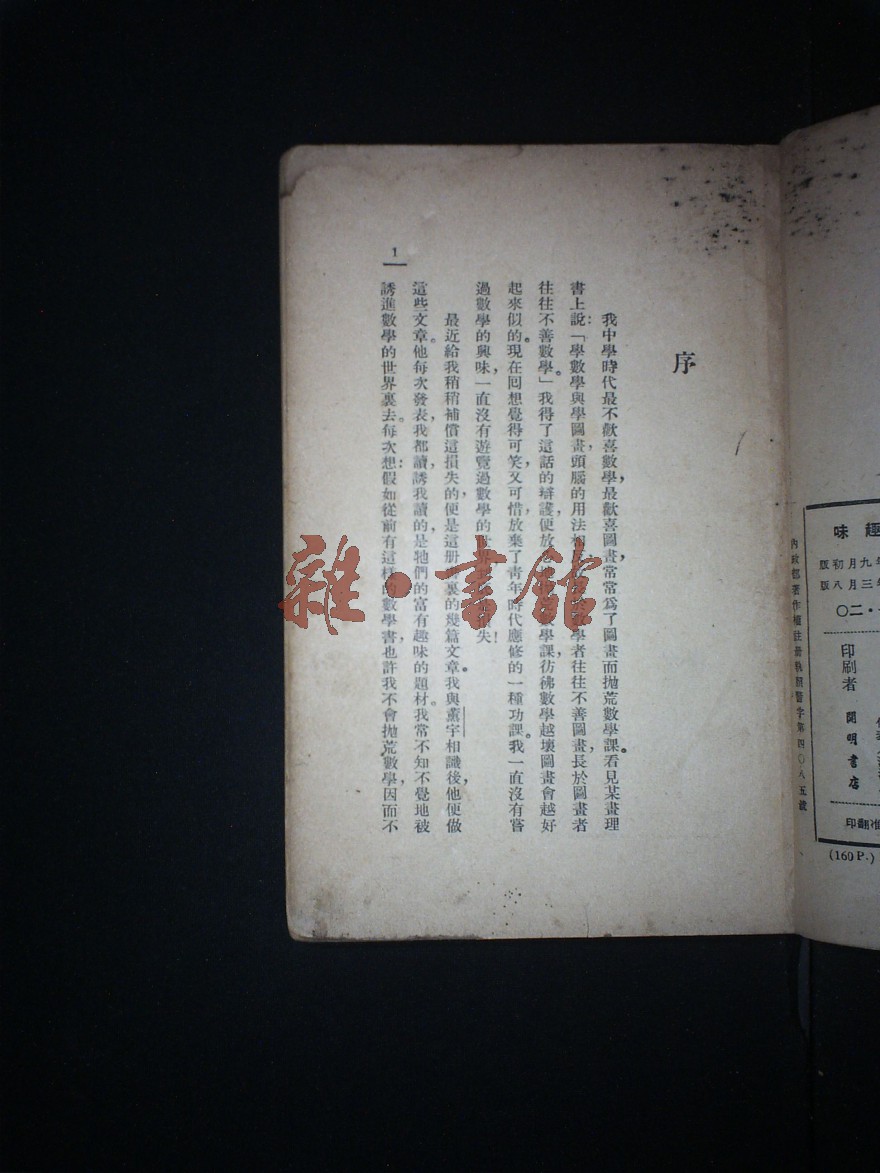 序
我中學時代最不歡喜數學,最歡喜圖畫,常常爲了圖畫而拋荒數學課。看見某畫理
書上說:「學數學與學圖畫,頭腦的用法相 數學者往往不善圖畫,長於圖畫者
往往不善數學。」我得了這話的辯護,便放心 數學課,彷彿數學越壞圖畫會越好
起來似的。現在回想覺得可笑,又可惜,放棄了靑年時代應修的一種功課。我一直沒有嘗
過數學的興味,一直沒有遊覽過數學的世界, 失!
最近給我稍稍補償這損失的,便是這册 裏的幾篇文章。我與薰宇相識後,他便做
這些文章。他每次發表,我都讀,誘我讀的,是牠們的富有趣味的題材。我常不知不覺地被
誘進數學的世界裏去。每次想:假如從前有這樣的數學書,也許我不會拋荒數學,因而不
1
雜·書館
內政部著作權註册執照警字第四〇八五號
趣味
初版
八版
印刷者
開明書店
(160 P.)